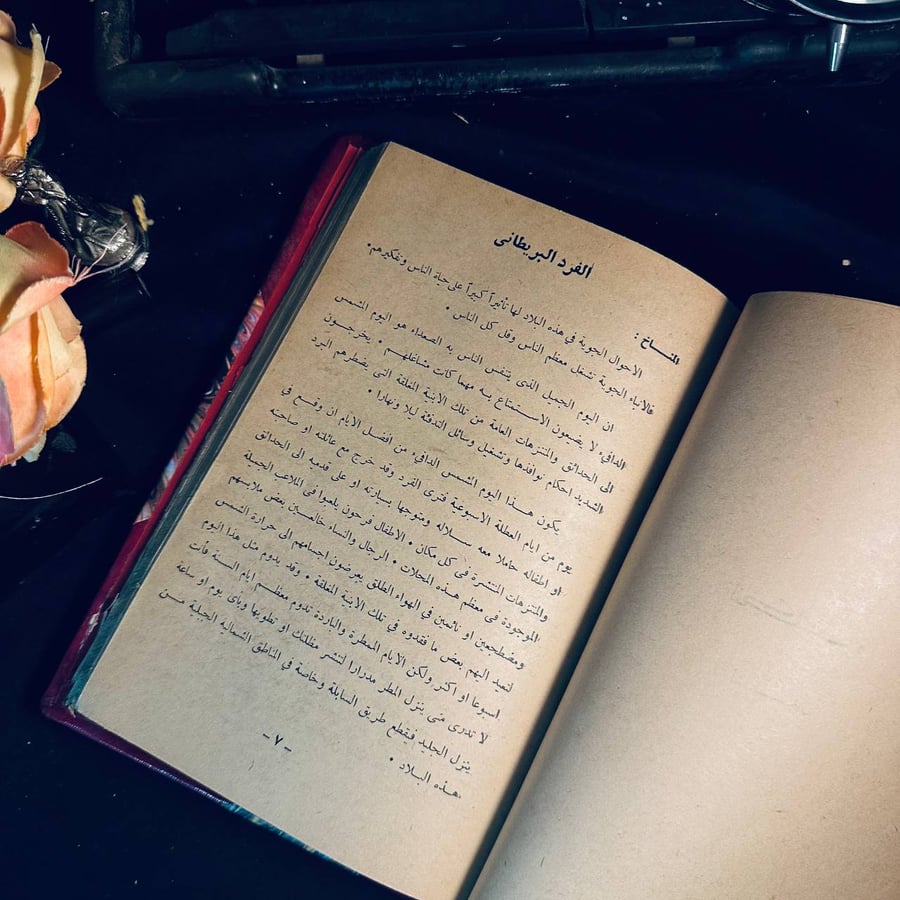 الفرد البريطانى
المناخ :
الاحوال الجوية في هذه البلاد لها تأثيراً كبيراً على حياة الناس وتفكيرهم.
فالانباء الجوية تشغل معظم الناس وقل كل الناس .
ان اليوم الجميل الذى يتنفس الناس به الصعداء هو اليوم الشمس
الدافىء لا يضيعون الاستمتاع به مهما كانت مشاغلهم . يخرجون
الى الحدائق والمتنزهات العامة من تلك الابنية المغلقة التى يضطرهم البرد
الشديد احكام نوافذها وتشغيل وسائل التدفئة ليلا ونهارا .
يكون هذا اليوم الشمس الدافىء من افضل الايام ان وقع في
يوم من ايام العطلة الاسبوعية فترى الفرد وقد خرج مع عائلته او صاحبته
او اطفاله حاملا معه سلاله ومتوجها بسيارته او على قدميه الى الحدائق
والمتنزهات المنتشرة فى كل مكان . الاطفال فرحون يلعبوا فى الملاعب الجميلة
الموجودة فى معظم هذه المحلات . الرجال والنساء خالعين بعض ملابسهم
ومضطجعين او نائمين في الهواء الطلق يعرضون اجسامهم الى حرارة الشمس
لتعيد اليهم بعض ما فقدوه في تلك الابنية المغلقة . وقد يدوم مثل هذا اليوم
اسبوعا او اكثر ولكن الايام الممطرة والباردة تدوم معظم ايام السنة فأنت
لا تدرى متى ينزل المطر مدرارا لتنشر مظلتك او تطويها وبأى يوم او ساعة
ينزل الجليد فيقطع طريق السابلة وخاصة في المناطق الشمالية الجبلية من
هذه البلاد .
- ٧ -